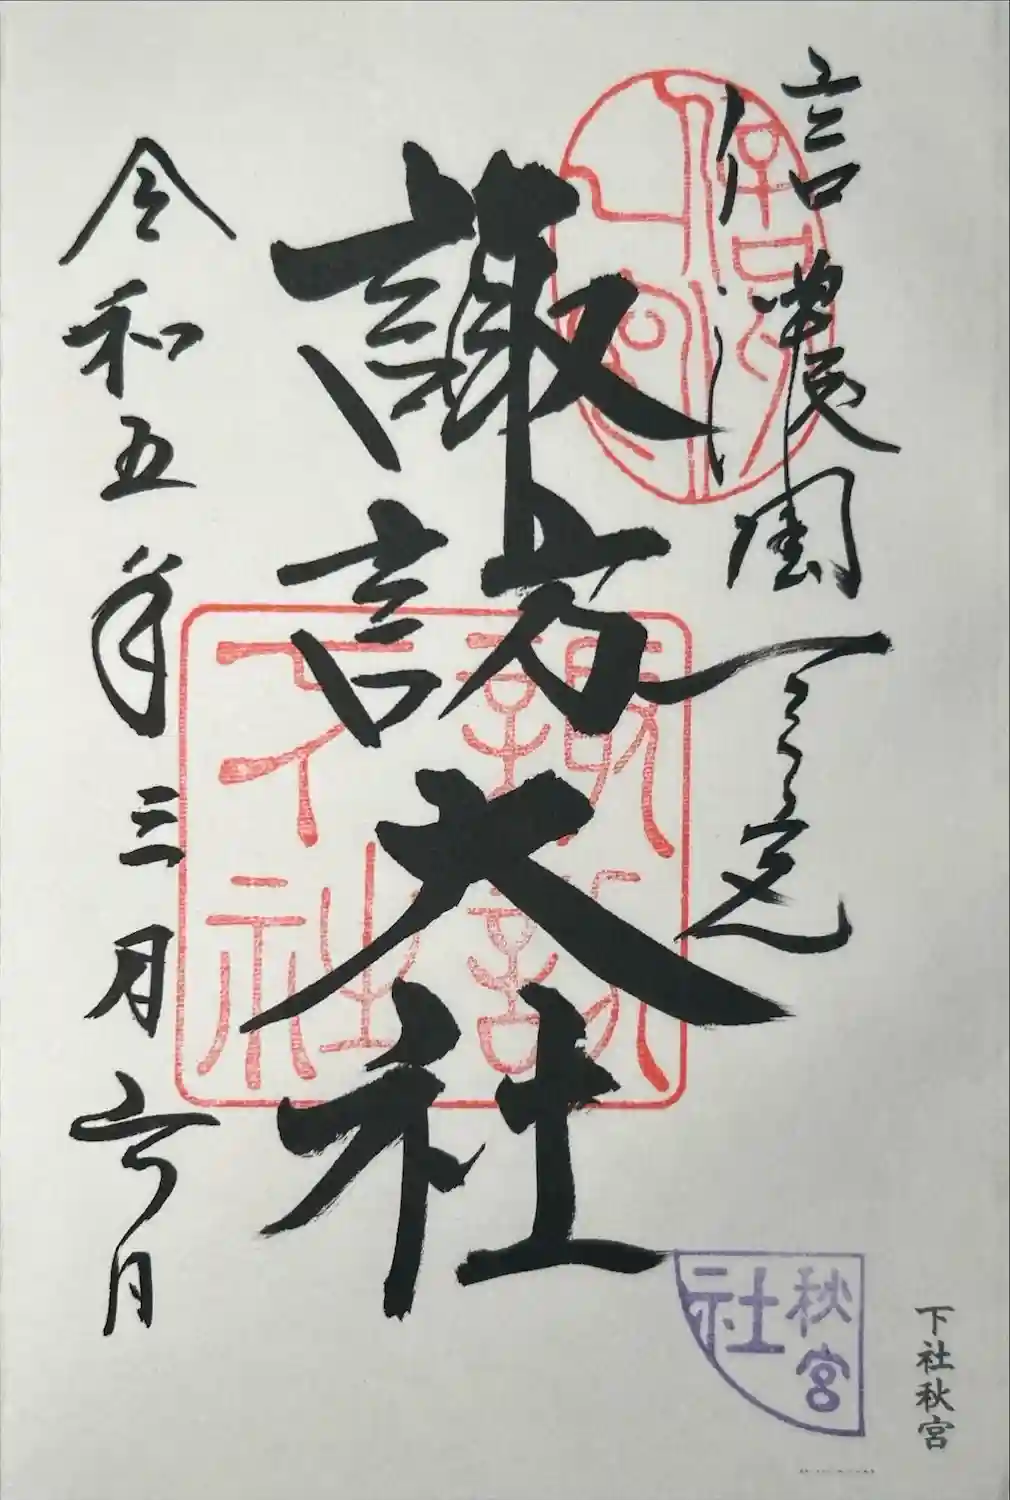 信濃國一之宮
諏訪大社
令和五年三月六日
諏訪
諏訪
下社
秋宮
社
下社秋宮